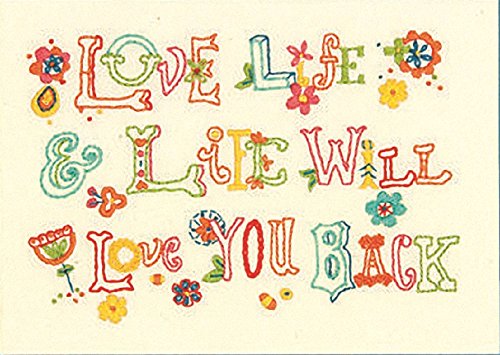 Love Life
& Life Will
Love You Back